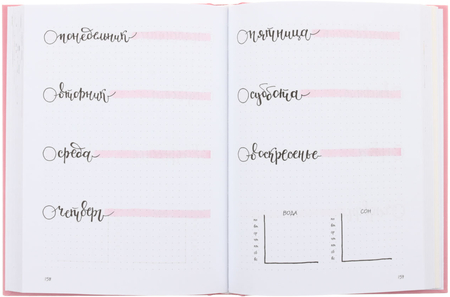 понедельник
вторник
среда
четверг
пятница
суббота
воскресенье
ВОДА
СОН